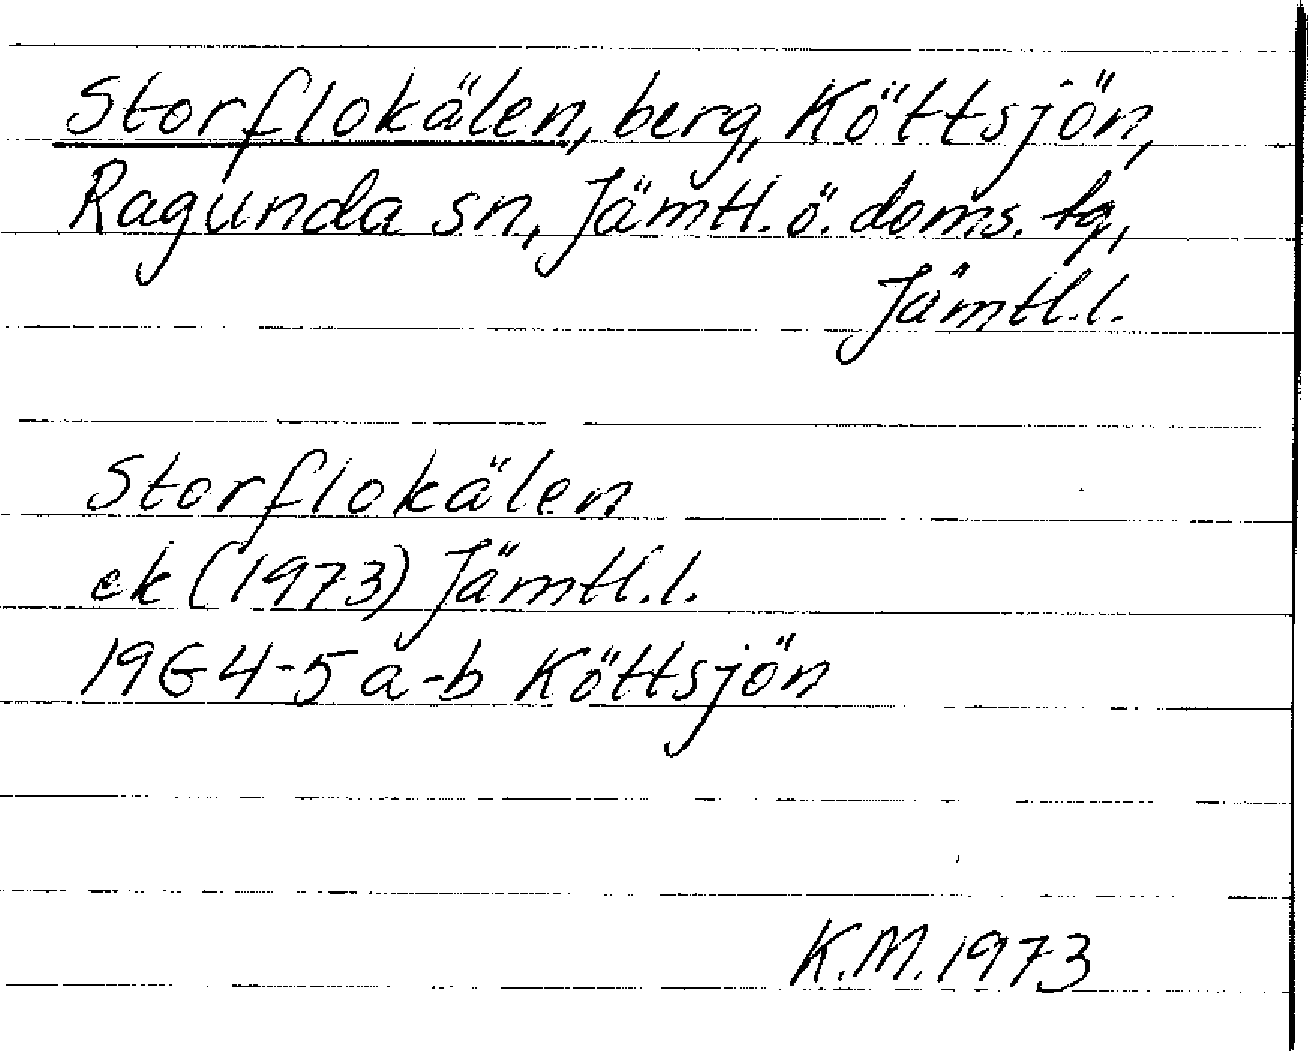 Storflokälen, berg, Köttsjön,
Ragunda sn, Jämtl. ö. doms. tg,
Jämtl. l.
Storflokälen
ek (1973) Jämtl. l.
19G 4-5 a-b Köttsjön
K.M. 1973